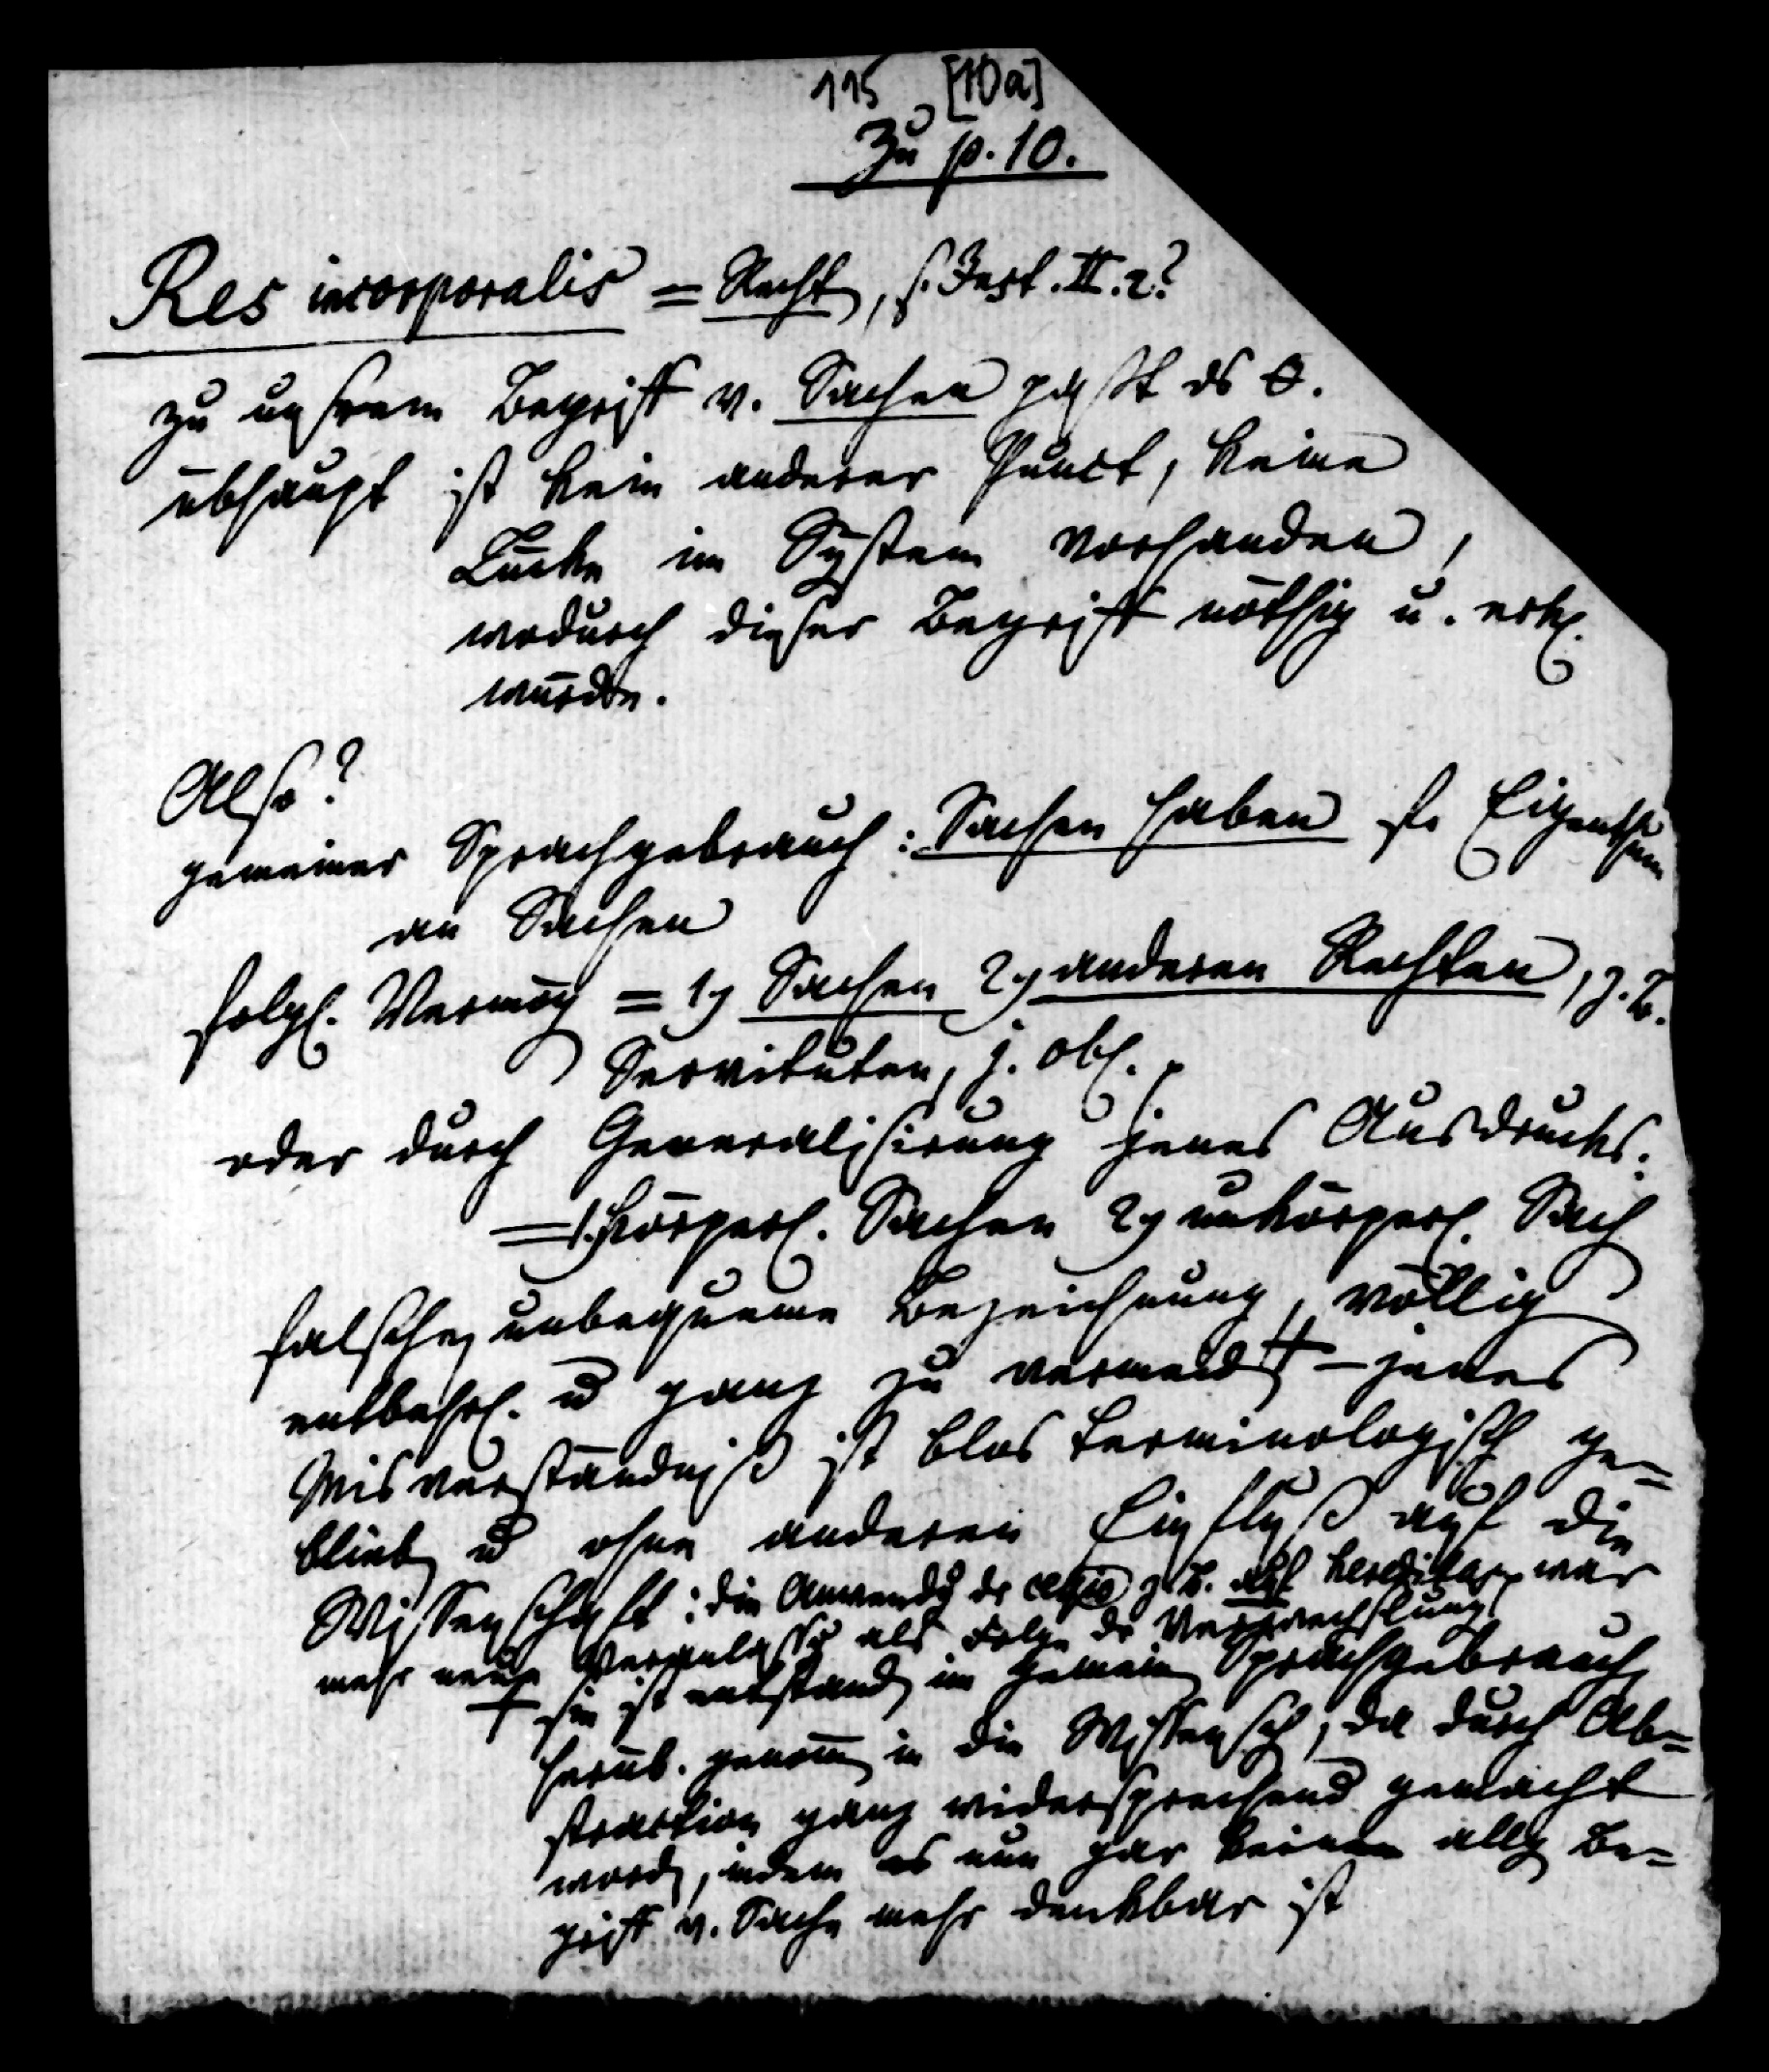 115 [10a]
Zu p. 10.
Res incorporalis = Recht, s. Inst. II. 2?
zu unsrem Begriff v. Sachen paßt es 0.
übhaupt ist kein anderer Punct, keine
Lücke im System vorhanden,
wodurch dieser Begriff nöthig u.
würde.
Also?
gemeiner Sprachgebrauch: Sachen haben st. Eigenthum
an Sachen
folgl. Vermög = 1) Sachen 2) anderen Rechten, z. B.
Servituten, j. obl.
oder durch Generalisirung jenes Ausdrucks:
= 1) körperl. Sachen 2) unkörperl. Sach
falsche, unbequeme Bezeichnung, völlig
entbehrl. u ganz zu vermeid + – jenes
Misverständniß ist blos terminologisch ge=
blieb u ohne anderen Einfluß auf die
Wissenschaft: die Anwendg der z. B. auf hereditas war
mehr neue Veranlassg als Folge der Verwechslung
+ sie ist entstand im gemein Sprachgebrauch
herüb. genom̄ in die Wissensch, da durch Ab=
straction ganz widersprechend gemacht
word, indem es nun gar keinen allg Be=
griff v. Sache mehr denkbar ist